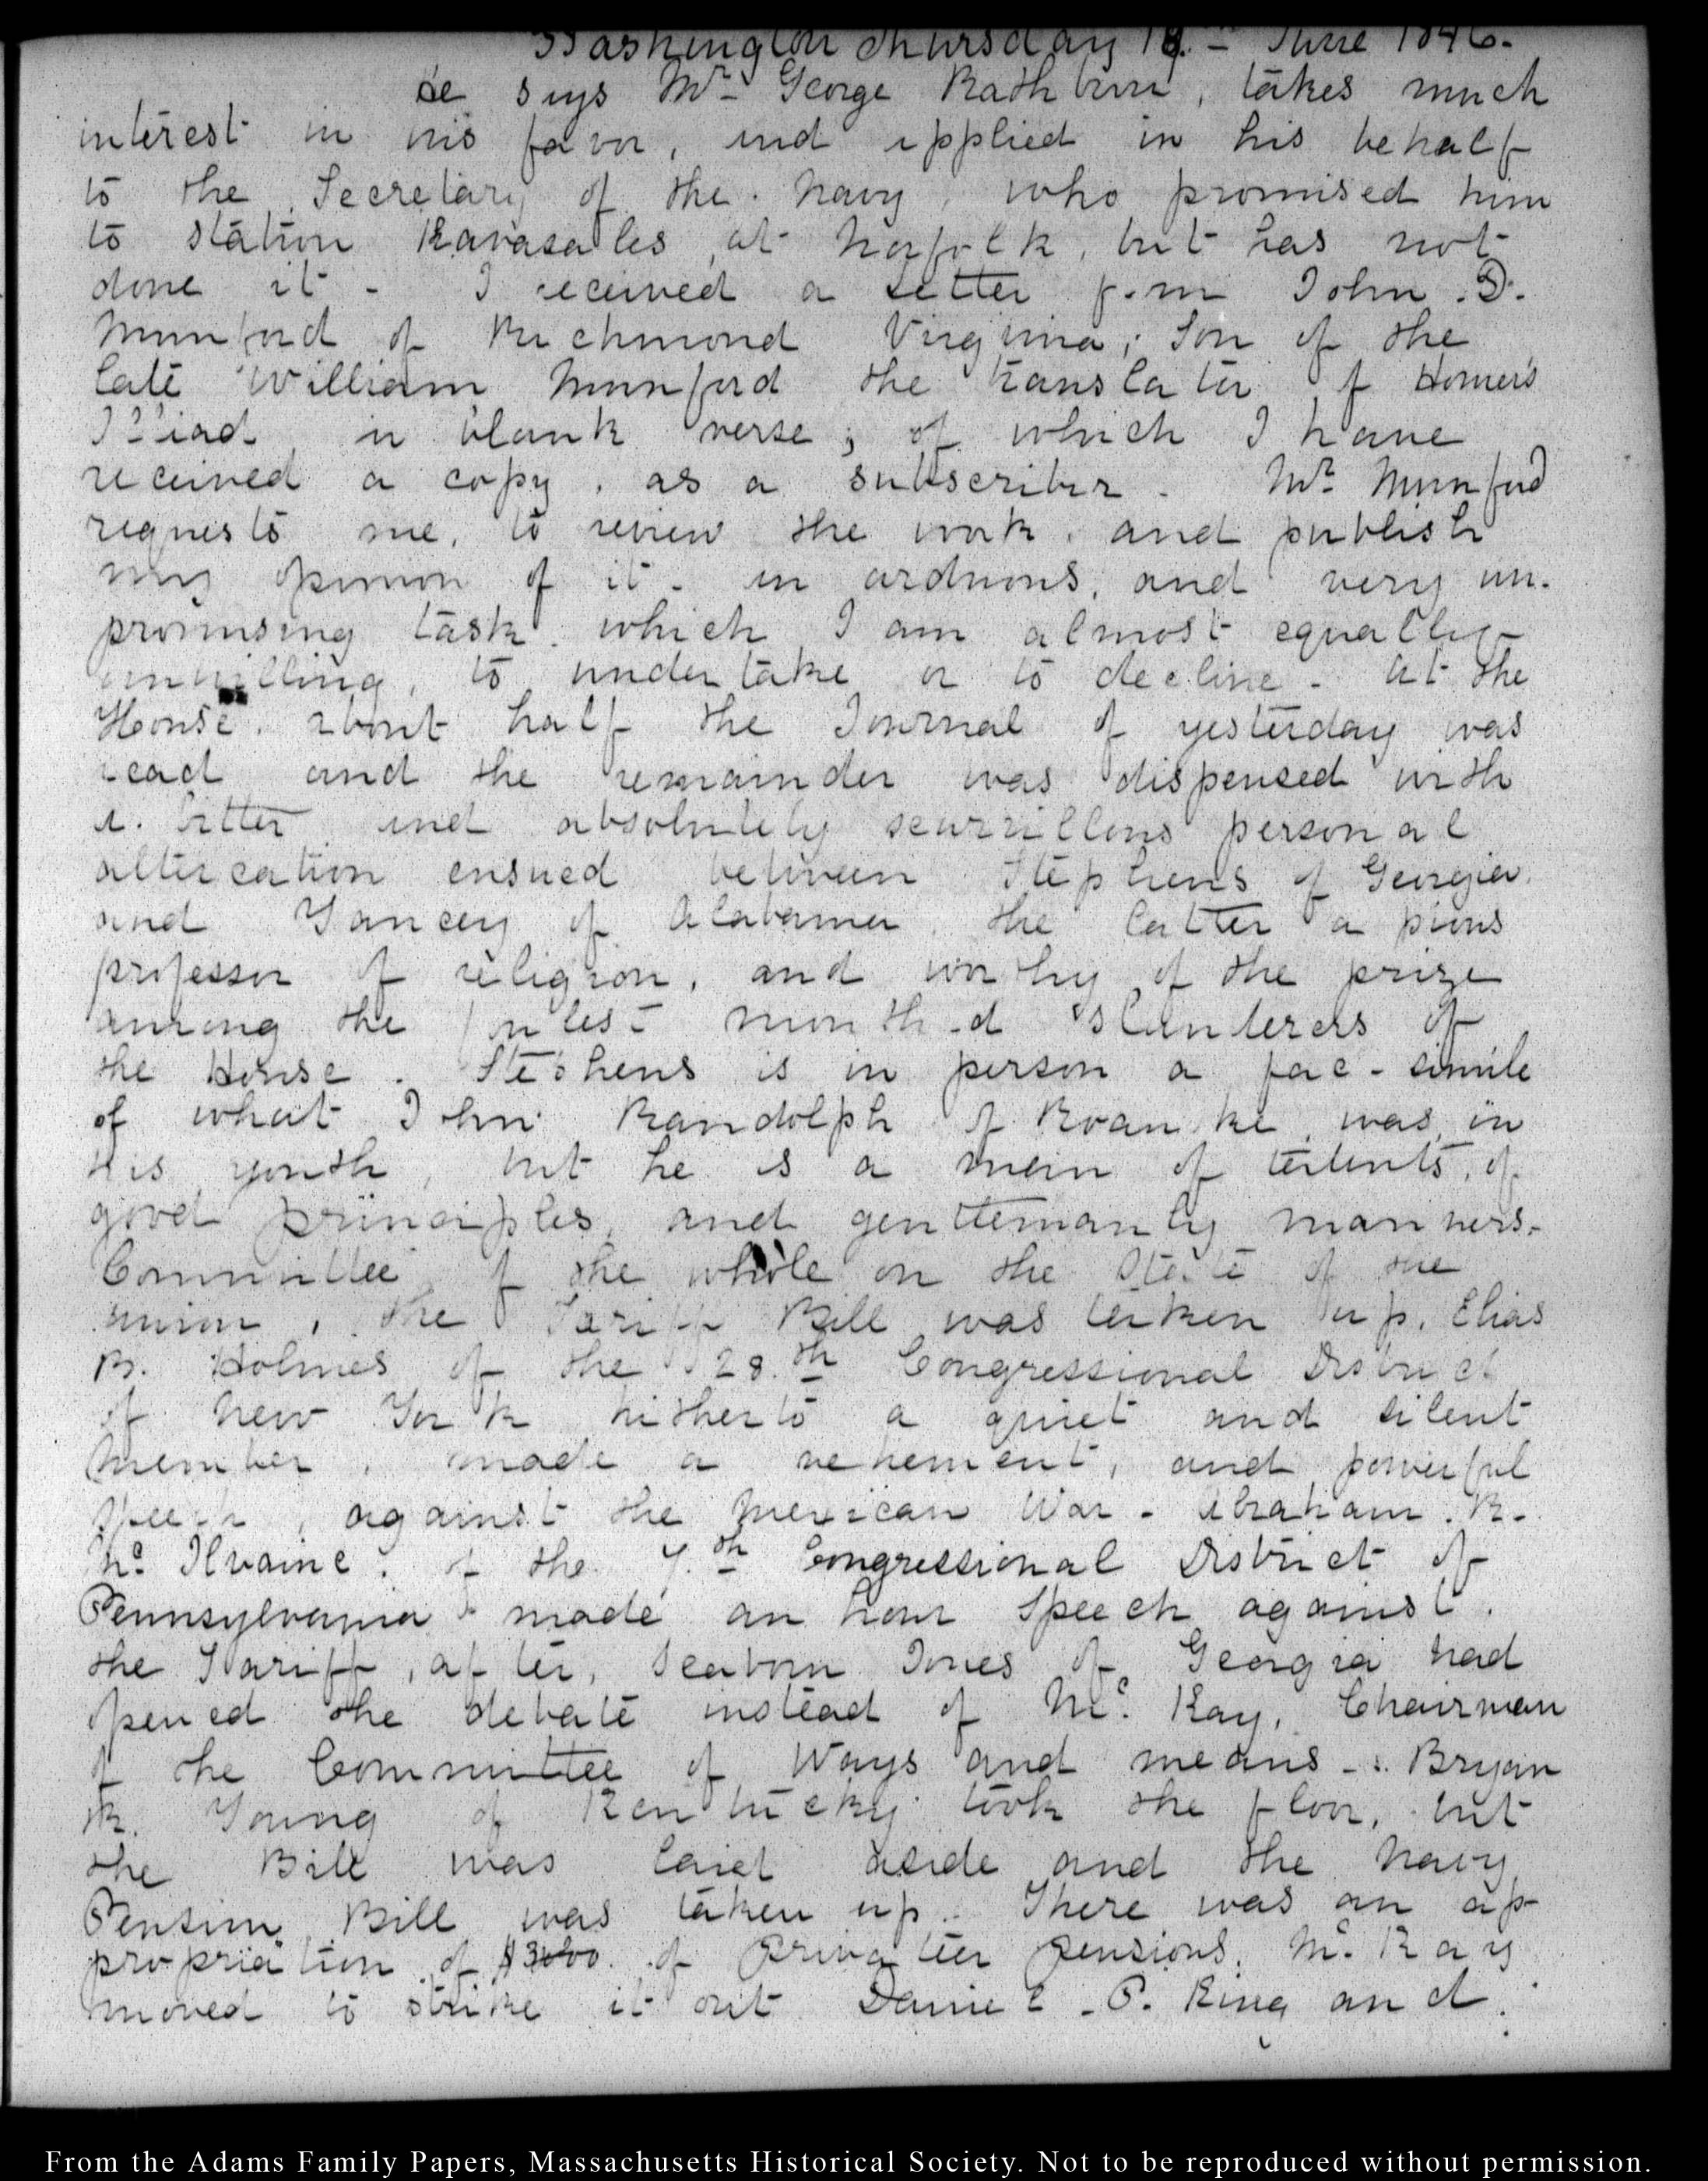 Washington Thursday 18th June 1846.
He says Mr George Rathbun, takes much
interest in his favor, and applied in his behalf
to the Secretary of the Navy, who promised him
to station Kavasales at Norfolk, but has not
done it - I received a Letter from John D.
Munford of Richmond Virginia, Son of the
late William Munford the translator of Homer's
Iliad in blank verse; of which I have
received a copy, as a subscriber - Mr Munford
requests me, to review the work, and publish
my opinion of it - an arduous, and very un-
promising task which I am almost equally
unwilling, to undertake or to decline - At the
House, about half the Journal of yesterday was
read and the remainder was dispensed with
a bitter and absolutely scurrillous personal
altercation ensued between Stephens of Georgia
and Yancey of Alabama the latter a pious
professor of religion, and worthy of the prize
among the foulest mouthed slanderers of
the House. Stephens is in person a fac-simile
of what John Randolph of Roanoke was in
his youth, but he is a man of talents, of
good principles, and gentlemanly manners.-
Committee of the whole on the State of the
Union, the Tariff Bill was taken up. Elias
B. Holmes of the 28.th Congressional District
of New York hitherto a quiet and silent
member, made a vehement, and powerful
speech, against the Mexican War - Abraham. R.
Mc. Ilvaine. of the 7.th Congressional District of
Pennsylvania made an hour Speech against.
the Tariff, after, Seaborn Jones of Georgia had
opened the debate instead of Mc. Kay, Chairman
of the Committee of Ways and means - Bryan
R. Young of Kentucky took the floor, but
the Bill was laid aside and the Navy
Pension Bill was taken up. There was an ap-
propriation of $3000. of Privateer pensions. Mc. Kay
moved to strike it out Daniel P. King and